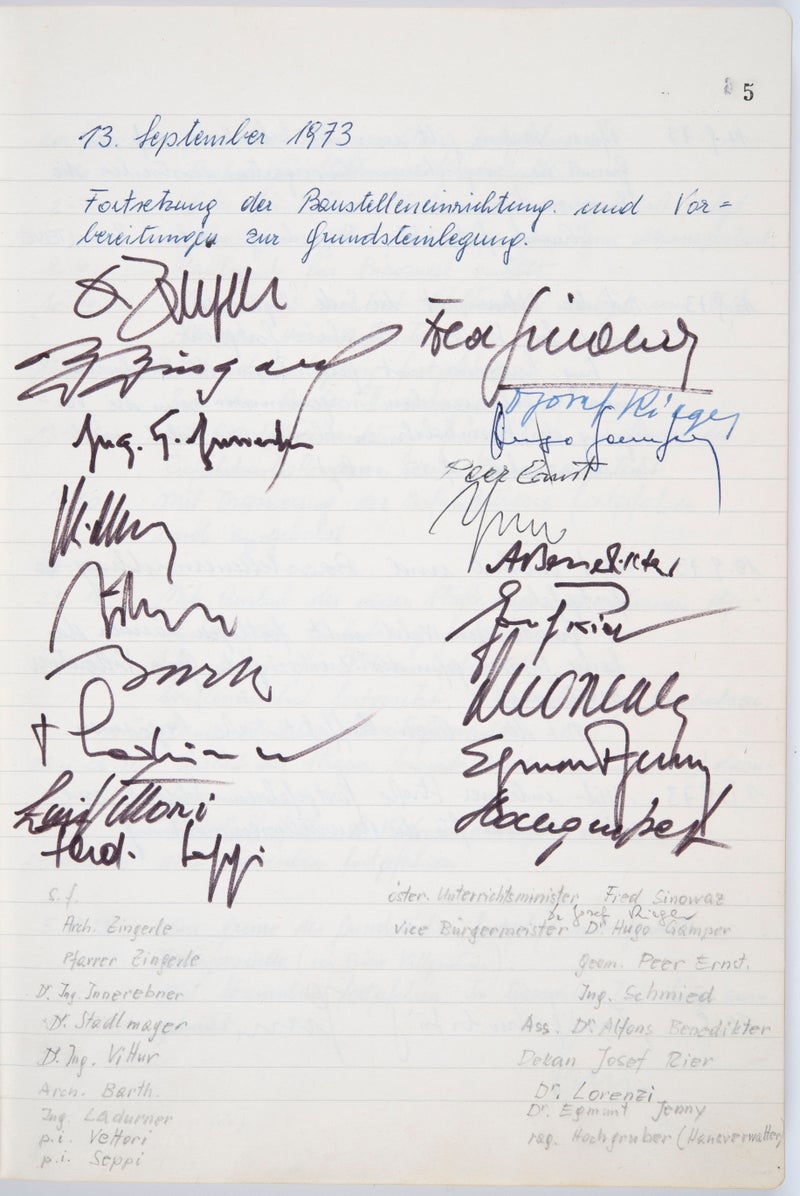 5
13. September 1973
Fortsetzung der Baustelleneinrichtung. und Vor=
bereitungen zur Grundsteinlegung.
Fred Sinowaz
Josef Rieger
Hugo Gamper
Peer Ernst
A Benedikter
Josef Rier
Barth
Egmont Jenny
Luis Vettori
Hochgruber
Ferd. Seppi
s.f.
Arch. Zingerle
Pfarrer Zingerle
Dr. Ing. Innerebner
Dr. Stadlmayer
Dr. Ing. Vittur
Arch. Barth.
Ing. Ladurner
p.i. Vettori
p.i. Seppi
öster. Unterrichtsminister Fred Sinowaz
Dr Josef Rieger
Vice Bürgermeister Dr. Hugo Gamper
geom. Peer Ernst.
Ing. Schmied
Ass. Dr. Alfons Benedikter
Dekan Josef Rier
Dr. Lorenzi
Dr. Egmunt Jenny
rag. Hochgruber (Hausverwalter)